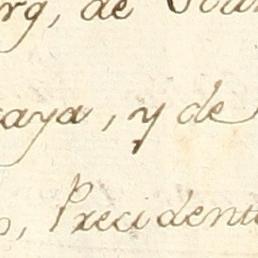 rg, de
caya, y de
, Precident